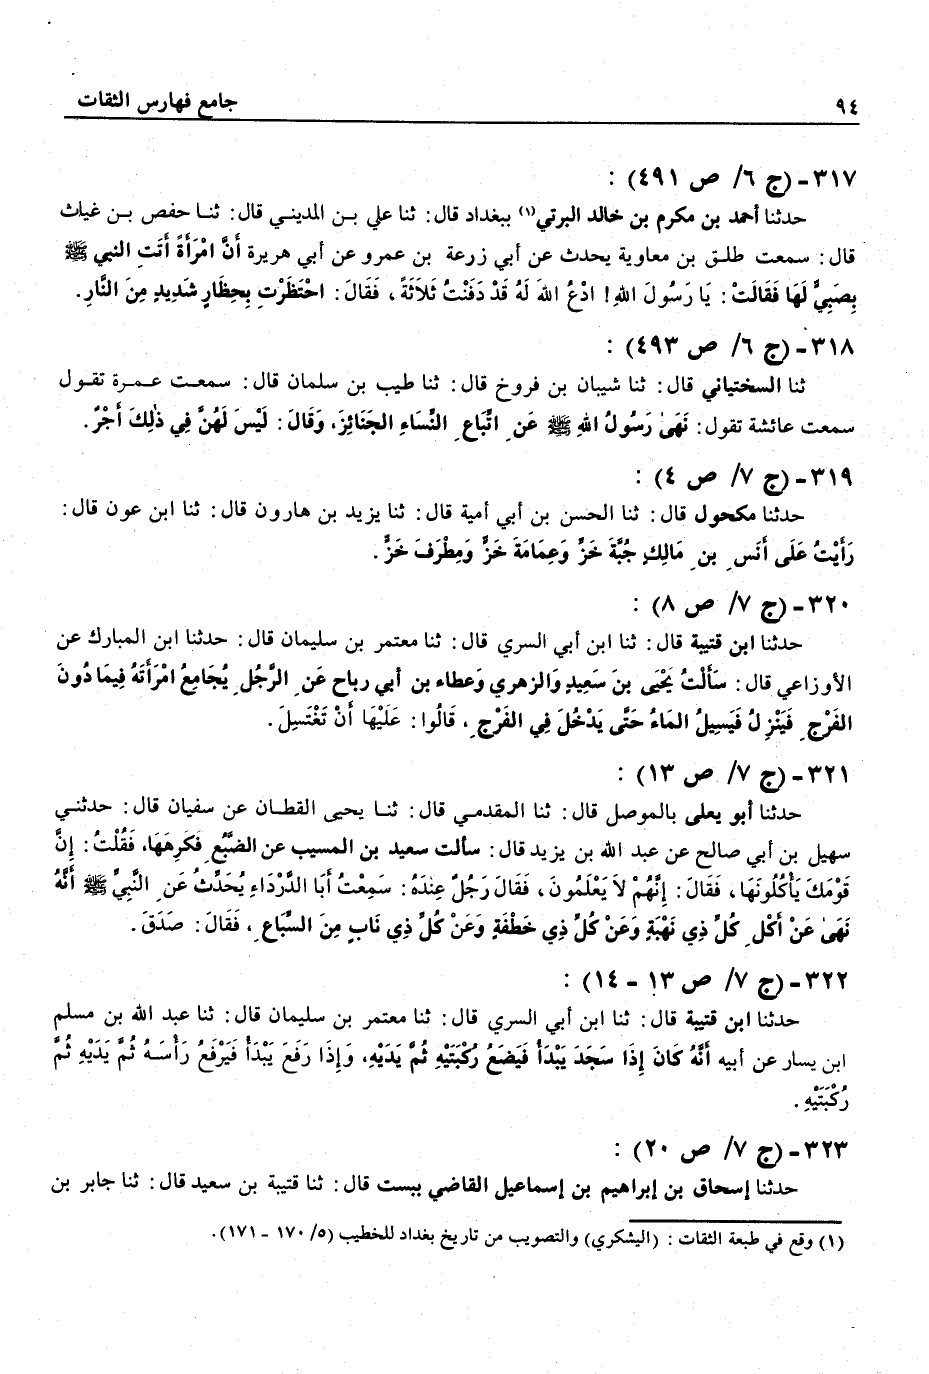 ٩٤
جامع فهارس الثقات
٣١٧ - (ج ٦/ ص ٤٩١) :
حدثنا أحمد بن مكرم بن خالد البرتي(١) ببغداد قال: ثنا علي بـن المدينـي قال: ثنـا حفص بـن غياث
قال: سمعت طلـق بن معاوية يحدث عن أبي زرعة بن عمرو عن أبي هريرة أَنَّ امْرَأَةً أَتَتِ النبي ﷺ
بِصَبِيٍّ لَهَا فَقَالَتْ: يَا رَسُولَ اللهِ! ادْعُ اللهَ لَهُ قَدْ دَفَنْتُ ثَلاَثَةً، فَقَالَ: احْتَظَرْتِ بِحِظَارٍ شَدِيدٍ مِنَ النَّارِ.
٣١٨ - (ج ٦/ ص ٤٩٣) :
ثنا السختياني قال: ثنا شيبان بن فروخ قال: ثنا طيب بن سلمان قال: سمعـت عـمـرة تقـول
سمعت عائشة تقول: نَهَىٰ رَسُولُ اللهِ ﷺ عَنِ اتْبَاعِ النِّسَاءِ الجَنَائِزَ، وَقَالَ: لَيْسَ لَهُنَّ فِي ذٰلِكَ أَجْرٌ.
٣١٩ - (ج ٧/ ص ٤) :
حدثنا مكحول قال: ثنا الحسن بن أبي أمية قال: ثنا يزيد بن هارون قال: ثنا ابن عون قال:
رَأَيْتُ عَلَى أَنَسِ بنِ مَالِكٍ جُبَّةَ خَزٍّ وَعِمَامَةَ خَزٍّ وَمِطْرَفَ خَزٍّ.
٣٢٠ - (ج ٧/ ص ٨) :
حدثنا ابن قتيبة قال: ثنا ابن أبي السري قال: ثنا معتمر بن سليمان قال: حدثنا ابن المبارك عن
الأوزاعي قال: سَأَلْتُ يَحْيَى بنَ سَعِيدٍ وَالزهري وَعطاء بن أبي رباح عَنِ الرَّجُلِ يُجَامِعُ امْرَأَتَهُ فِيمَا دُونَ
الفَرْجِ فَيَنْزِلُ فَيَسِيلُ المَاءُ حَتَّى يَدْخُلَ فِي الفَرْجِ، قَالُوا: عَلَيْهَا أَنْ تَغْتَسِلَ.
٣٢١ - (ج ٧/ ص ١٣) :
حدثنا أبو يعلى بالموصل قال: ثنا المقدمـي قال: ثنـا يحيى القطـان عن سفيان قال: حدثنـي
سهيل بن أبي صالح عن عبد الله بن يزيد قال: سألت سعيد بن المسيب عن الضَّبُعِ فَكَرِهَهَا، فَقُلْتُ: إِنَّ
قَوْمَكَ يَأْكُلُونَهَا، فَقَالَ: إِنَّهُمْ لاَ يَعْلَمُونَ، فَقَالَ رَجُلٌ عِنْدَهُ: سَمِعْتُ أَبَا الدَّرْدَاءِ يُحَدِّثُ عَنِ النَّبِيِّ ﷺ أَنَّهُ
نَهَىٰ عَنْ أَكْلِ كُلِّ ذِي نَهْبَةٍ وَعَنْ كُلِّ ذِي خَطْفَةٍ وَعَنْ كُلِّ ذِي نَابٍ مِنَ السِّبَاعِ، فَقَالَ: صَدَقَ.
٣٢٢ - (ج ٧/ ص ١٣ - ١٤) :
حدثنا ابن قتيبة قال: ثنا ابن أبي السري قال: ثنا معتمر بن سليمان قال: ثنا عبد الله بن مسلم
ابن يسار عن أبيه أَنَّهُ كَانَ إِذَا سَجَدَ يَبْدَأُ فَيَضَعُ رُكْبَتَيْهِ ثُمَّ يَدَيْهِ، وَإِذَا رَفَعَ يَبْدَأُ فَيَرْفَعُ رَأْسَهُ ثُمَّ يَدَيْهِ ثُمَّ
رُكْبَتَيْهِ.
٣٢٣ - (ج ٧/ ص ٢٠) :
حدثنا إسحاق بن إبراهيم بن إسماعيل القاضي ببست قال: ثنا قتيبة بن سعيد قال: ثنا جابر بن
(١) وقع في طبعة الثقات: (اليشكري) والتصويب من تاريخ بغداد للخطيب (٥/ ١٧٠ - ١٧١).